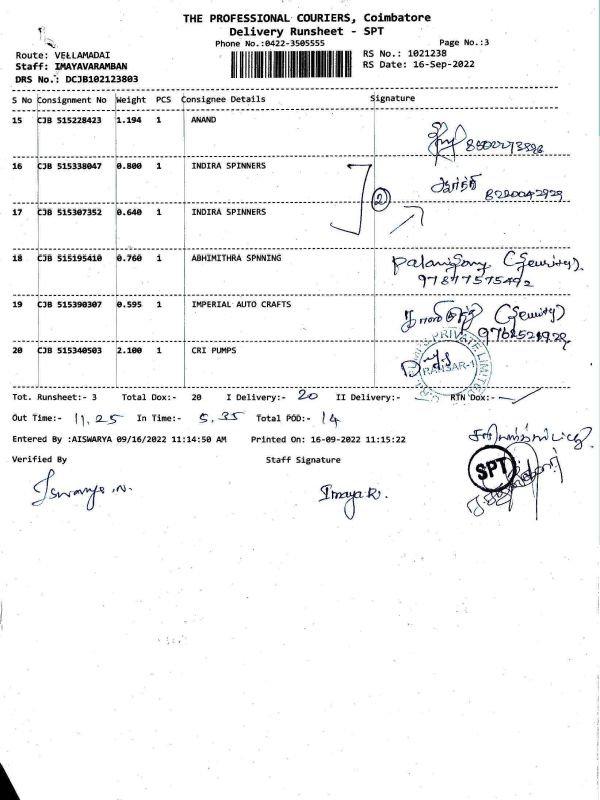 THE PROFESSIONAL COURIERS, Coimbatore
Delivery Runsheet - SPT
Phone No.:0422-3505555 Page No.:3
Route: VELLAMADAI RS No.: 1021238
Staff: IMAYAVARAMBAN RS Date: 16-Sep-2022
DRS No.: DCJB102123803
S No Consignment No Weight PCS Consignee Details Signature
15 CJB 515228423 1.194 1 ANAND
16 CJB 515338047 0.800 1 INDIRA SPINNERS
8220042929
2
17 CJB 515307352 0.640 1 INDIRA SPINNERS
18 CJB 515195410 0.760 1 ABHIMITHRA SPNNING
19 CJB 515390307 0.595 1 IMPERIAL AUTO CRAFTS
20 CJB 515340503 2.100 1 CRI PUMPS
PRIVATE LIMITED
Tot. Runsheet:- 3 Total Dox:- 20 I Delivery:- 20 II Delivery:- RTN Dox:-
Out Time:- 11.25 In Time:- 5.35 Total POD:- 14
Entered By :AISWARYA 09/16/2022 11:14:50 AM Printed On: 16-09-2022 11:15:22
Verified By Staff Signature
SPT
Imaya R.